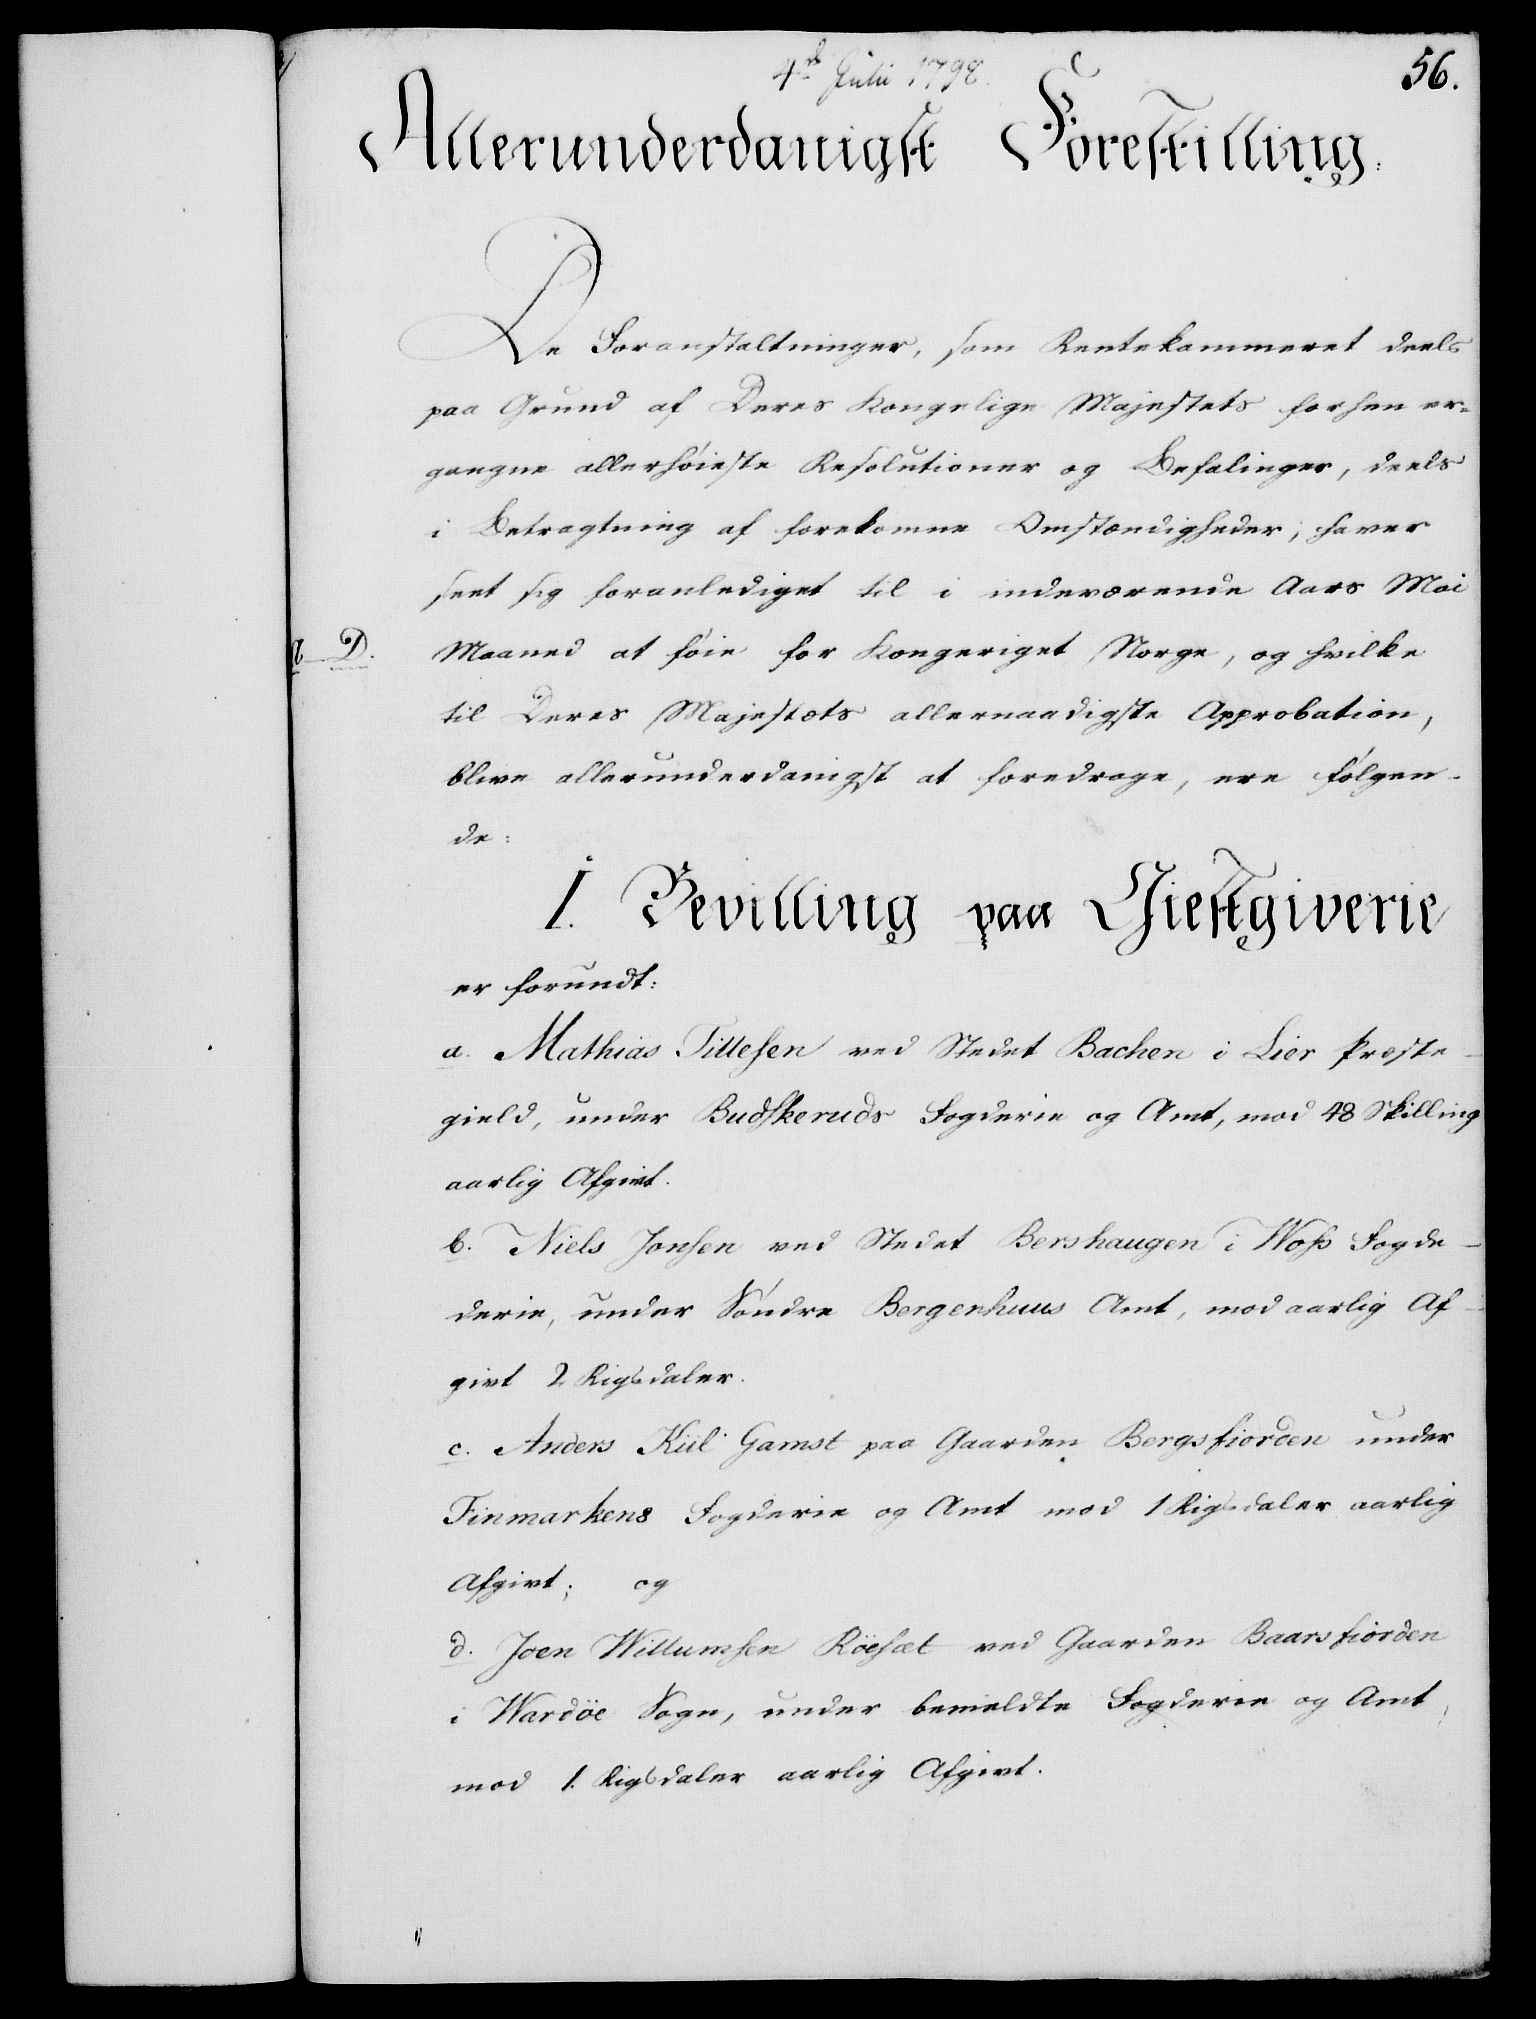 4de Julii 1798.
56.
Allerunderdanigst Forestilling:
De Foranstaltninger, som Rentekammeret deels
paa Grund af Deres Kongelige Majestets forhen er-
gangne allerhøieste Resolutioner og Befalinger, deels
i Betragtning af forekomne Omstændigheder, haver
seet sig foranlediget til i indeværende Aars Mai
D. Maaned at føie for Kongeriget Norge, og hvilke
til Deres Majestæts allernaadigste Approbation,
blive allerunderdanigst at foredrage, ere følgen-
de:
I. Bevilling paa Giestgiverie
er forundt:
a. Mathias Tillesen ved Stedet Bachen i Lier Præste-
gield, under Budskeruds Fogderie og Amt, mod 48 Skilling
aarlig Afgivt.
b. Niels Jonsen ved Stedet Bershaugen i Woss Fogde-
derie, under Søndre Bergenhuus Amt, mod aarlig Af-
givt 2 Rigsdaler.
c. Anders Kiil Gamst paa Gaarden Bergsfiorden under
Finmarkens Fogderie og Amt mod 1 Rigsdaler aarlig
Afgivt; og
d. Joen Willumsen Röesæt ved Gaarden Baarsfiorden
i Wardöe Sogn, under bemeldte Fogderie og Amt,
mod 1. Rigsdaler aarlig Afgivt.